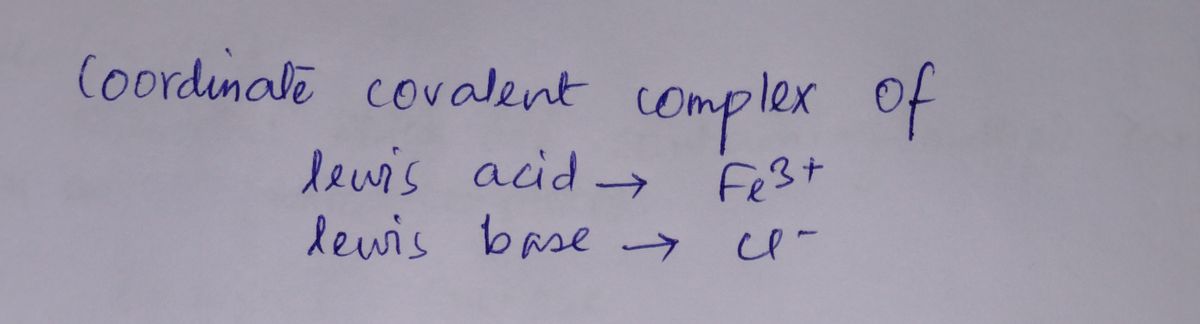 Coordinate covalent complex of
lewis acid → Fe3+
lewis base → Cl-